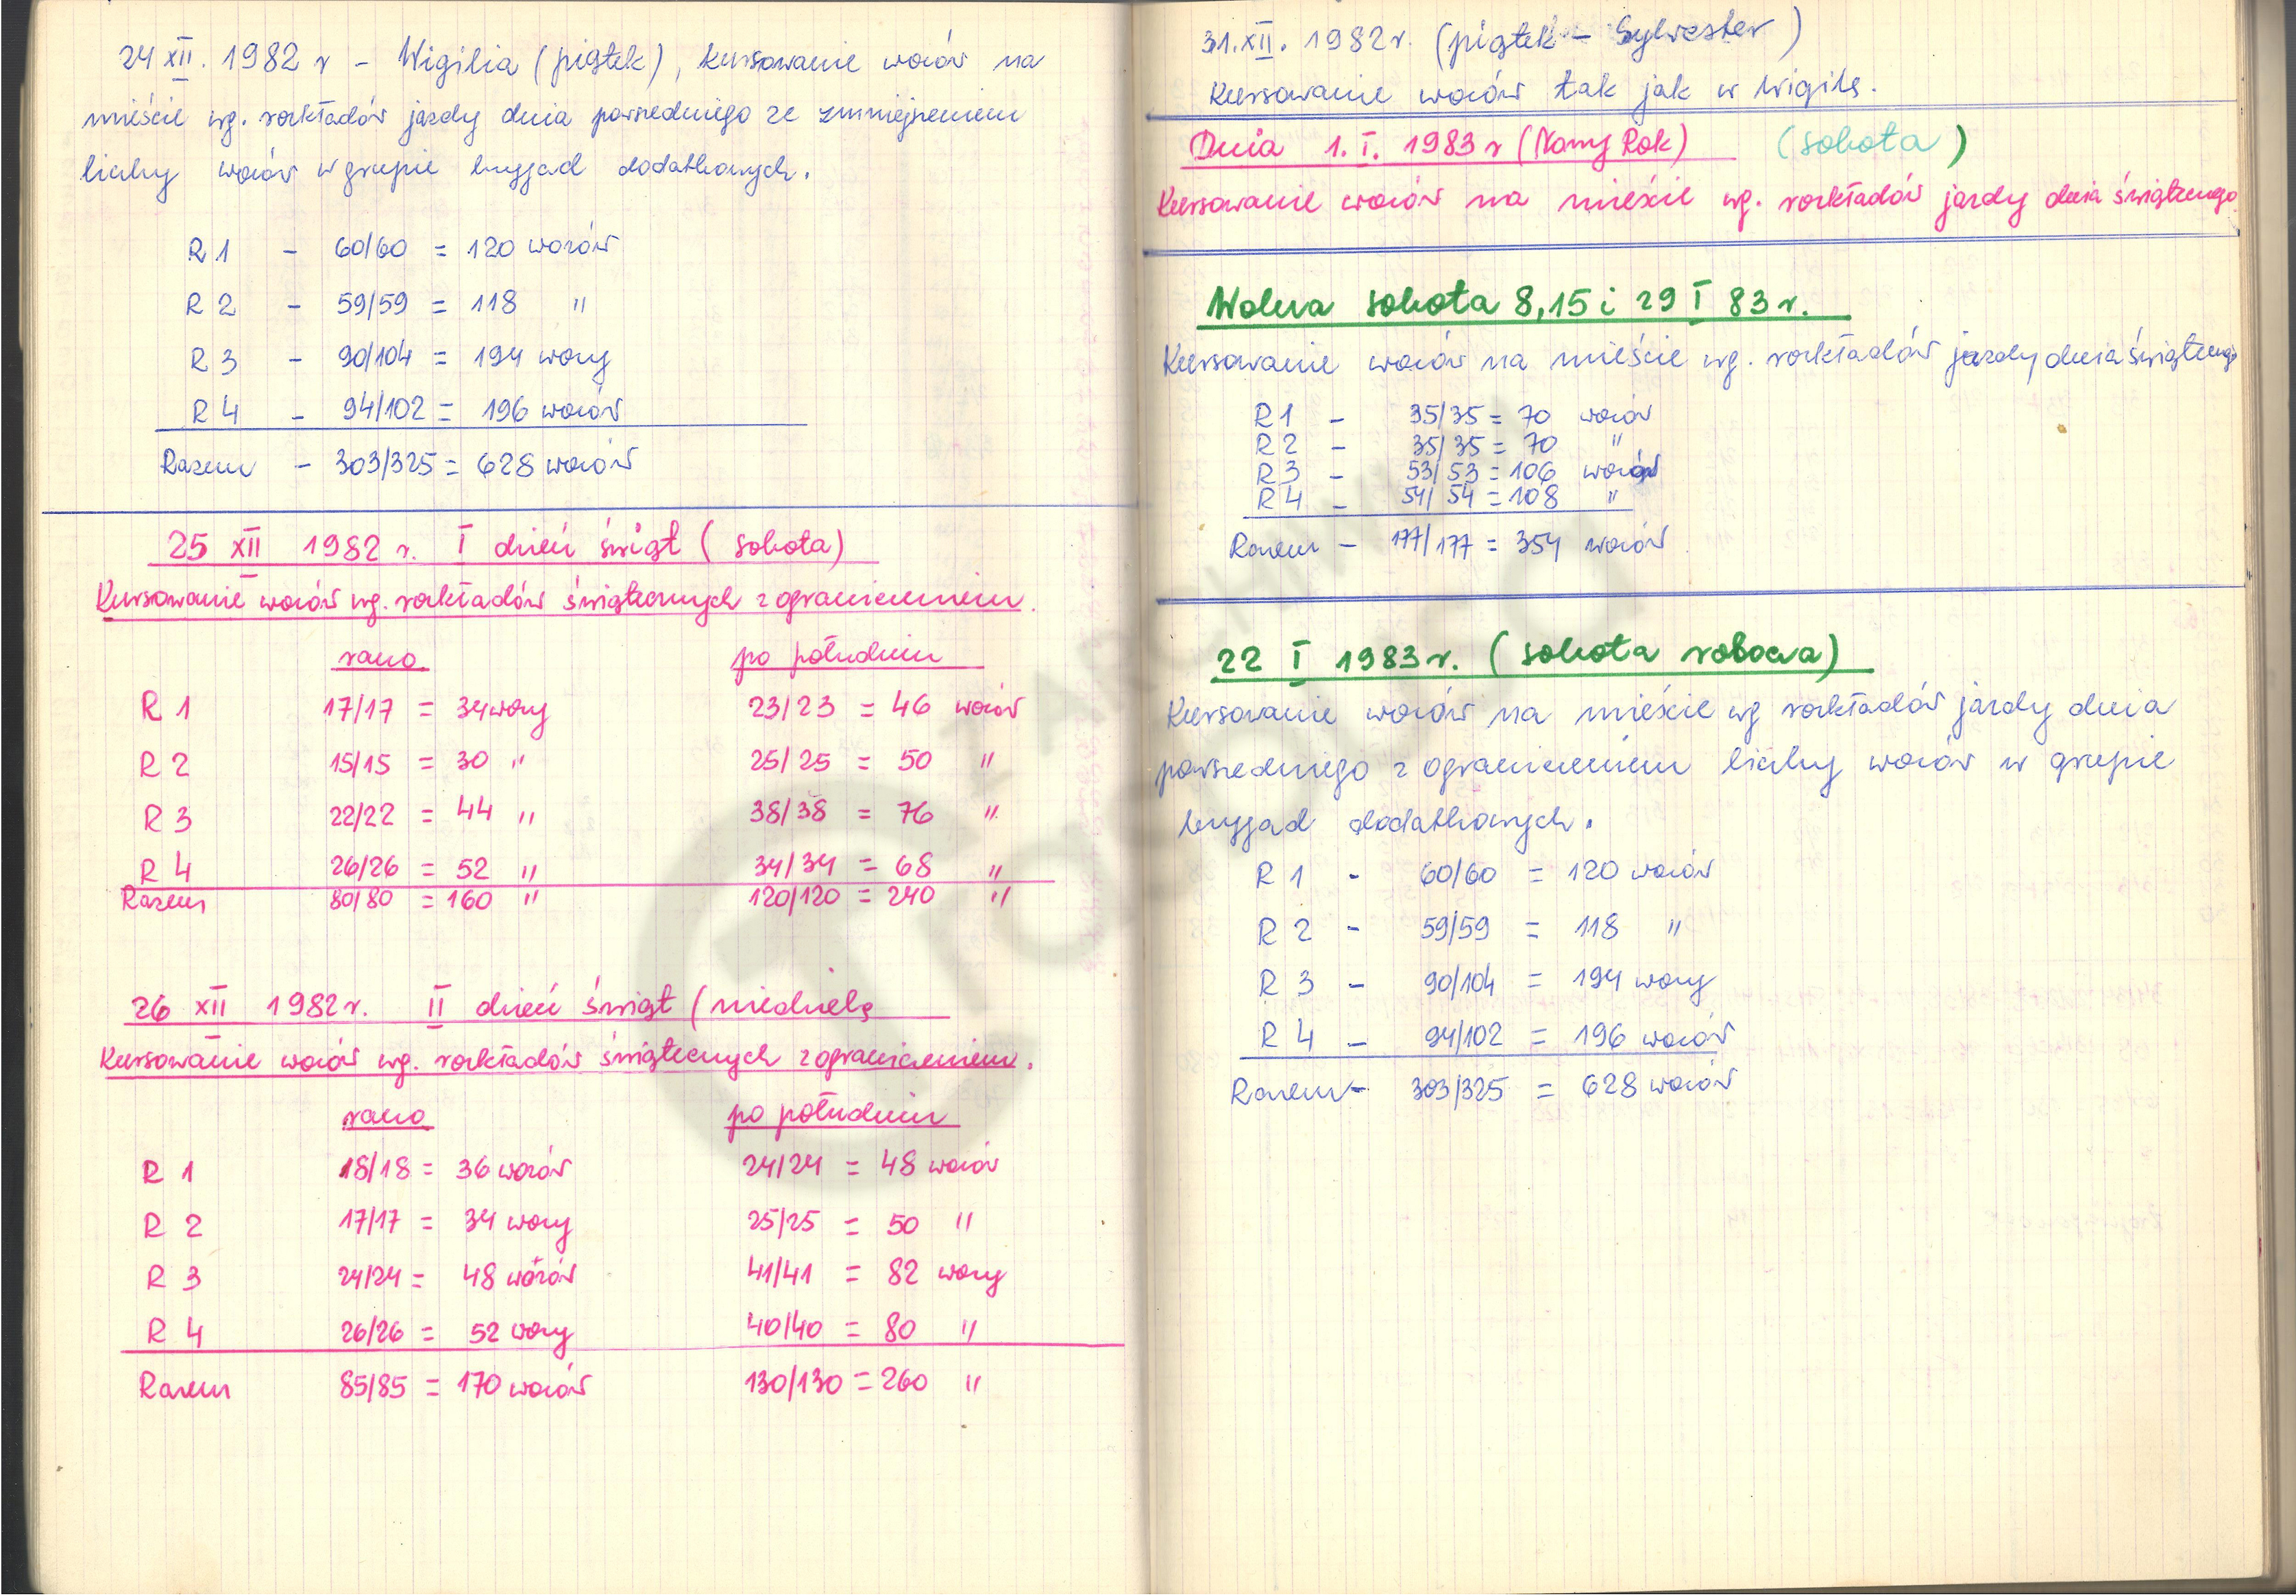 24 XII. 1982 r - Wigilia (piątek), kursowanie wozów na
mieście wg. rozkładów jazdy dnia powszedniego ze zmniejszeniem
liczby wozów w grupie brygad dodatkowych.
R 1 - 60/60 = 120 wozów
R 2 - 59/59 = 118 "
R 3 - 90/104 = 194 wozy
R 4 - 94/102 = 196 wozów
Razem - 303/325 = 628 wozów
25 XII 1982 r. I dzień świąt (sobota)
Kursowanie wozów wg. rozkładów świątecznych z ograniczeniem.
rano po południu
R 1 17/17 = 34 wozy 23/23 = 46 wozów
R 2 15/15 = 30 " 25/25 = 50 "
R 3 22/22 = 44 " 38/38 = 76 "
R 4 26/26 = 52 " 34/34 = 68 "
Razem 80/80 = 160 " 120/120 = 240 "
26 XII 1982 r. II dzień świąt (niedziela
Kursowanie wozów wg. rozkładów świątecznych z ograniczeniem.
rano po południu
R 1 18/18 = 36 wozów 24/24 = 48 wozów
R 2 17/17 = 34 wozy 25/25 = 50 "
R 3 24/24 = 48 wozów 41/41 = 82 wozy
R 4 26/26 = 52 wozy 40/40 = 80 "
Razem 85/85 = 170 wozów 130/130 = 260 "
31. XII. 1982 r. (piątek - Sylwester)
Kursowanie wozów tak jak w Wigilę.
Dnia 1. I. 1983 r (Nowy Rok) (sobota)
Kursowanie wozów na mieście wg. rozkładów jazdy dnia świątecznego
Wolna sobota 8, 15 i 29 I 83 r.
Kursowanie wozów na mieście wg. rozkładów jazdy dnia świąteczneg
R 1 - 35/35 = 70 wozów
R 2 - 35/35 = 70 "
R 3 - 53/53 = 106 wozów
R 4 - 54/54 = 108 "
Razem - 177/177 = 354 wozów
22 I 1983 r. (sobota robocza)
Kursowanie wozów na mieście wg rozkładów jazdy dnia
powszedniego z ograniczeniem liczby wozów w grupie
brygad dodatkowych.
R 1 - 60/60 = 120 wozów
R 2 - 59/59 = 118 "
R 3 - 90/104 = 194 wozy
R 4 - 94/102 = 196 wozów
Razem - 303/325 = 628 wozów